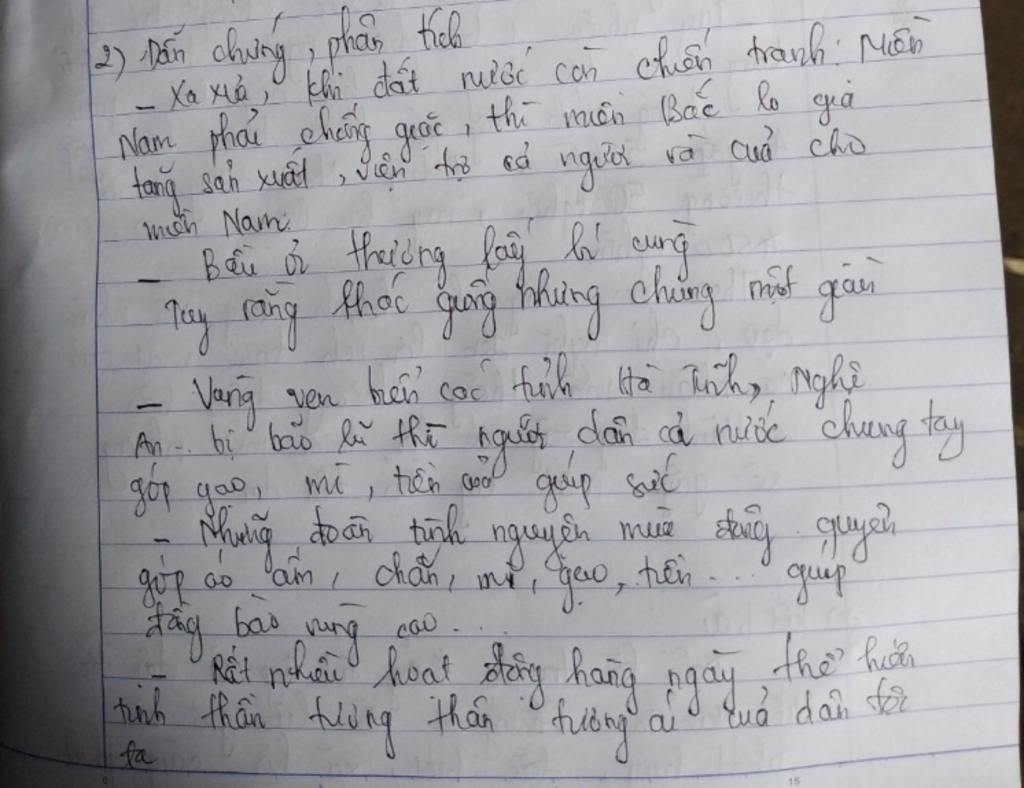 2) Dẫn chứng, phân tích
- Xa xưa, khi đất nước còn chiến tranh: Miền
Nam phải chống giặc, thì miền Bắc lo gia
tăng sản xuất, viện trợ cả người và của cho
miền Nam.
- Bầu ơi thương lấy bí cùng
Tuy rằng khác giống nhưng chung một giàn
- Vùng ven biển các tỉnh Hà Tĩnh, Nghệ
An.. bị bão lũ thì người dân cả nước chung tay
góp gạo, mì, tiền của giúp sức
- Những đoàn tình nguyện mùa đông quyên
góp áo ấm, chăn, mì, gạo, tiền ... giúp
đồng bào vùng cao ...
- Rất nhiều hoạt động hàng ngày thể hiện
tinh thần tương thân tương ái của dân tộc
ta
15